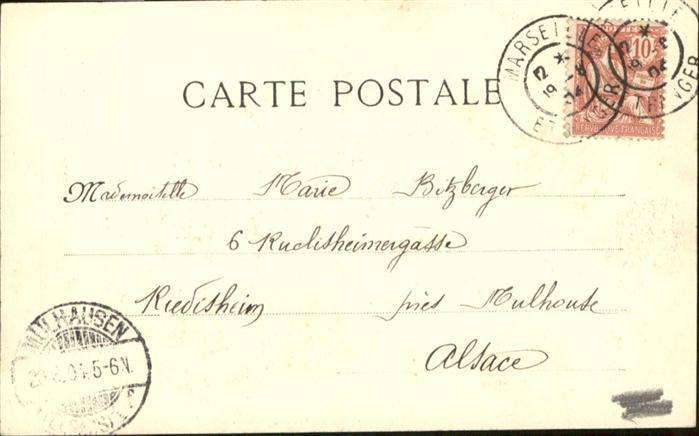 CARTE POSTALE
MARSEILLE ETRANGER
12 * 8
19 04
10
REPUBLIQUE FRANÇAISE
Mademoiselle Marie Betzberger
6 Ruelisheimergasse
Riedisheim près Mulhouse
Alsace
MÜLHAUSEN
5-6N.